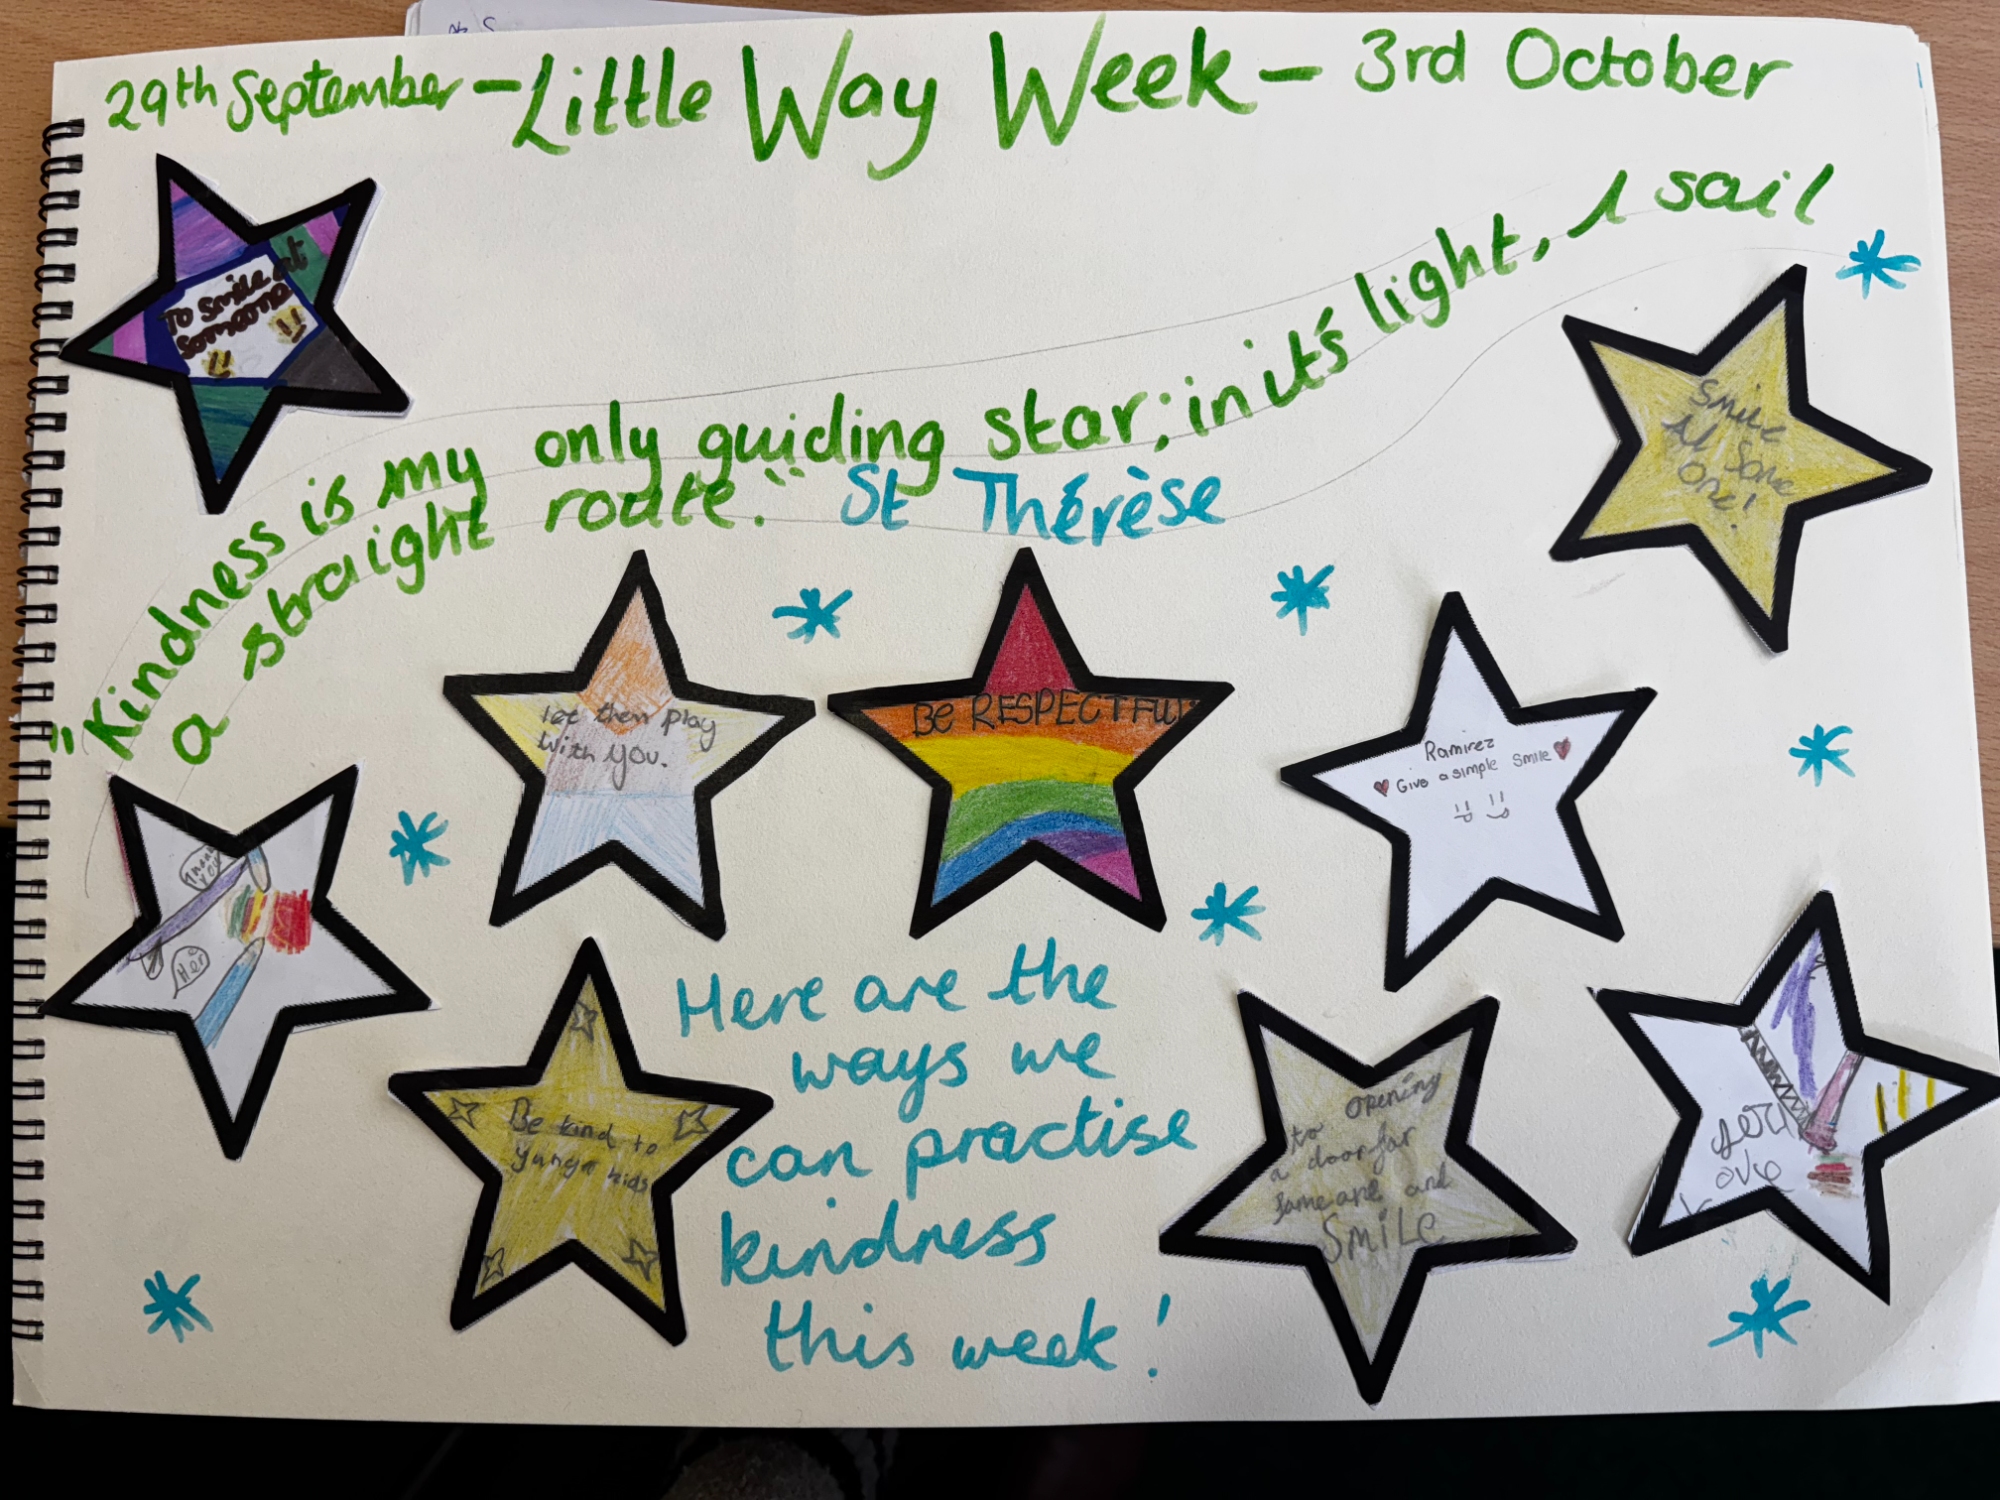 29th September - Little Way Week - 3rd October
"Kindness is my only guiding star; in it's light, I sail
a straight route." St Thérèse
To Smile at
someone
Smile
At Some
One!
let them play
with you.
BE RESPECTFUL
Ramirez
Give a simple smile
thank
you
Her
Be kind to
yunge kids
Here are the
ways we
can practise
kindness
this week!
to opening
a door for
and
SMILE